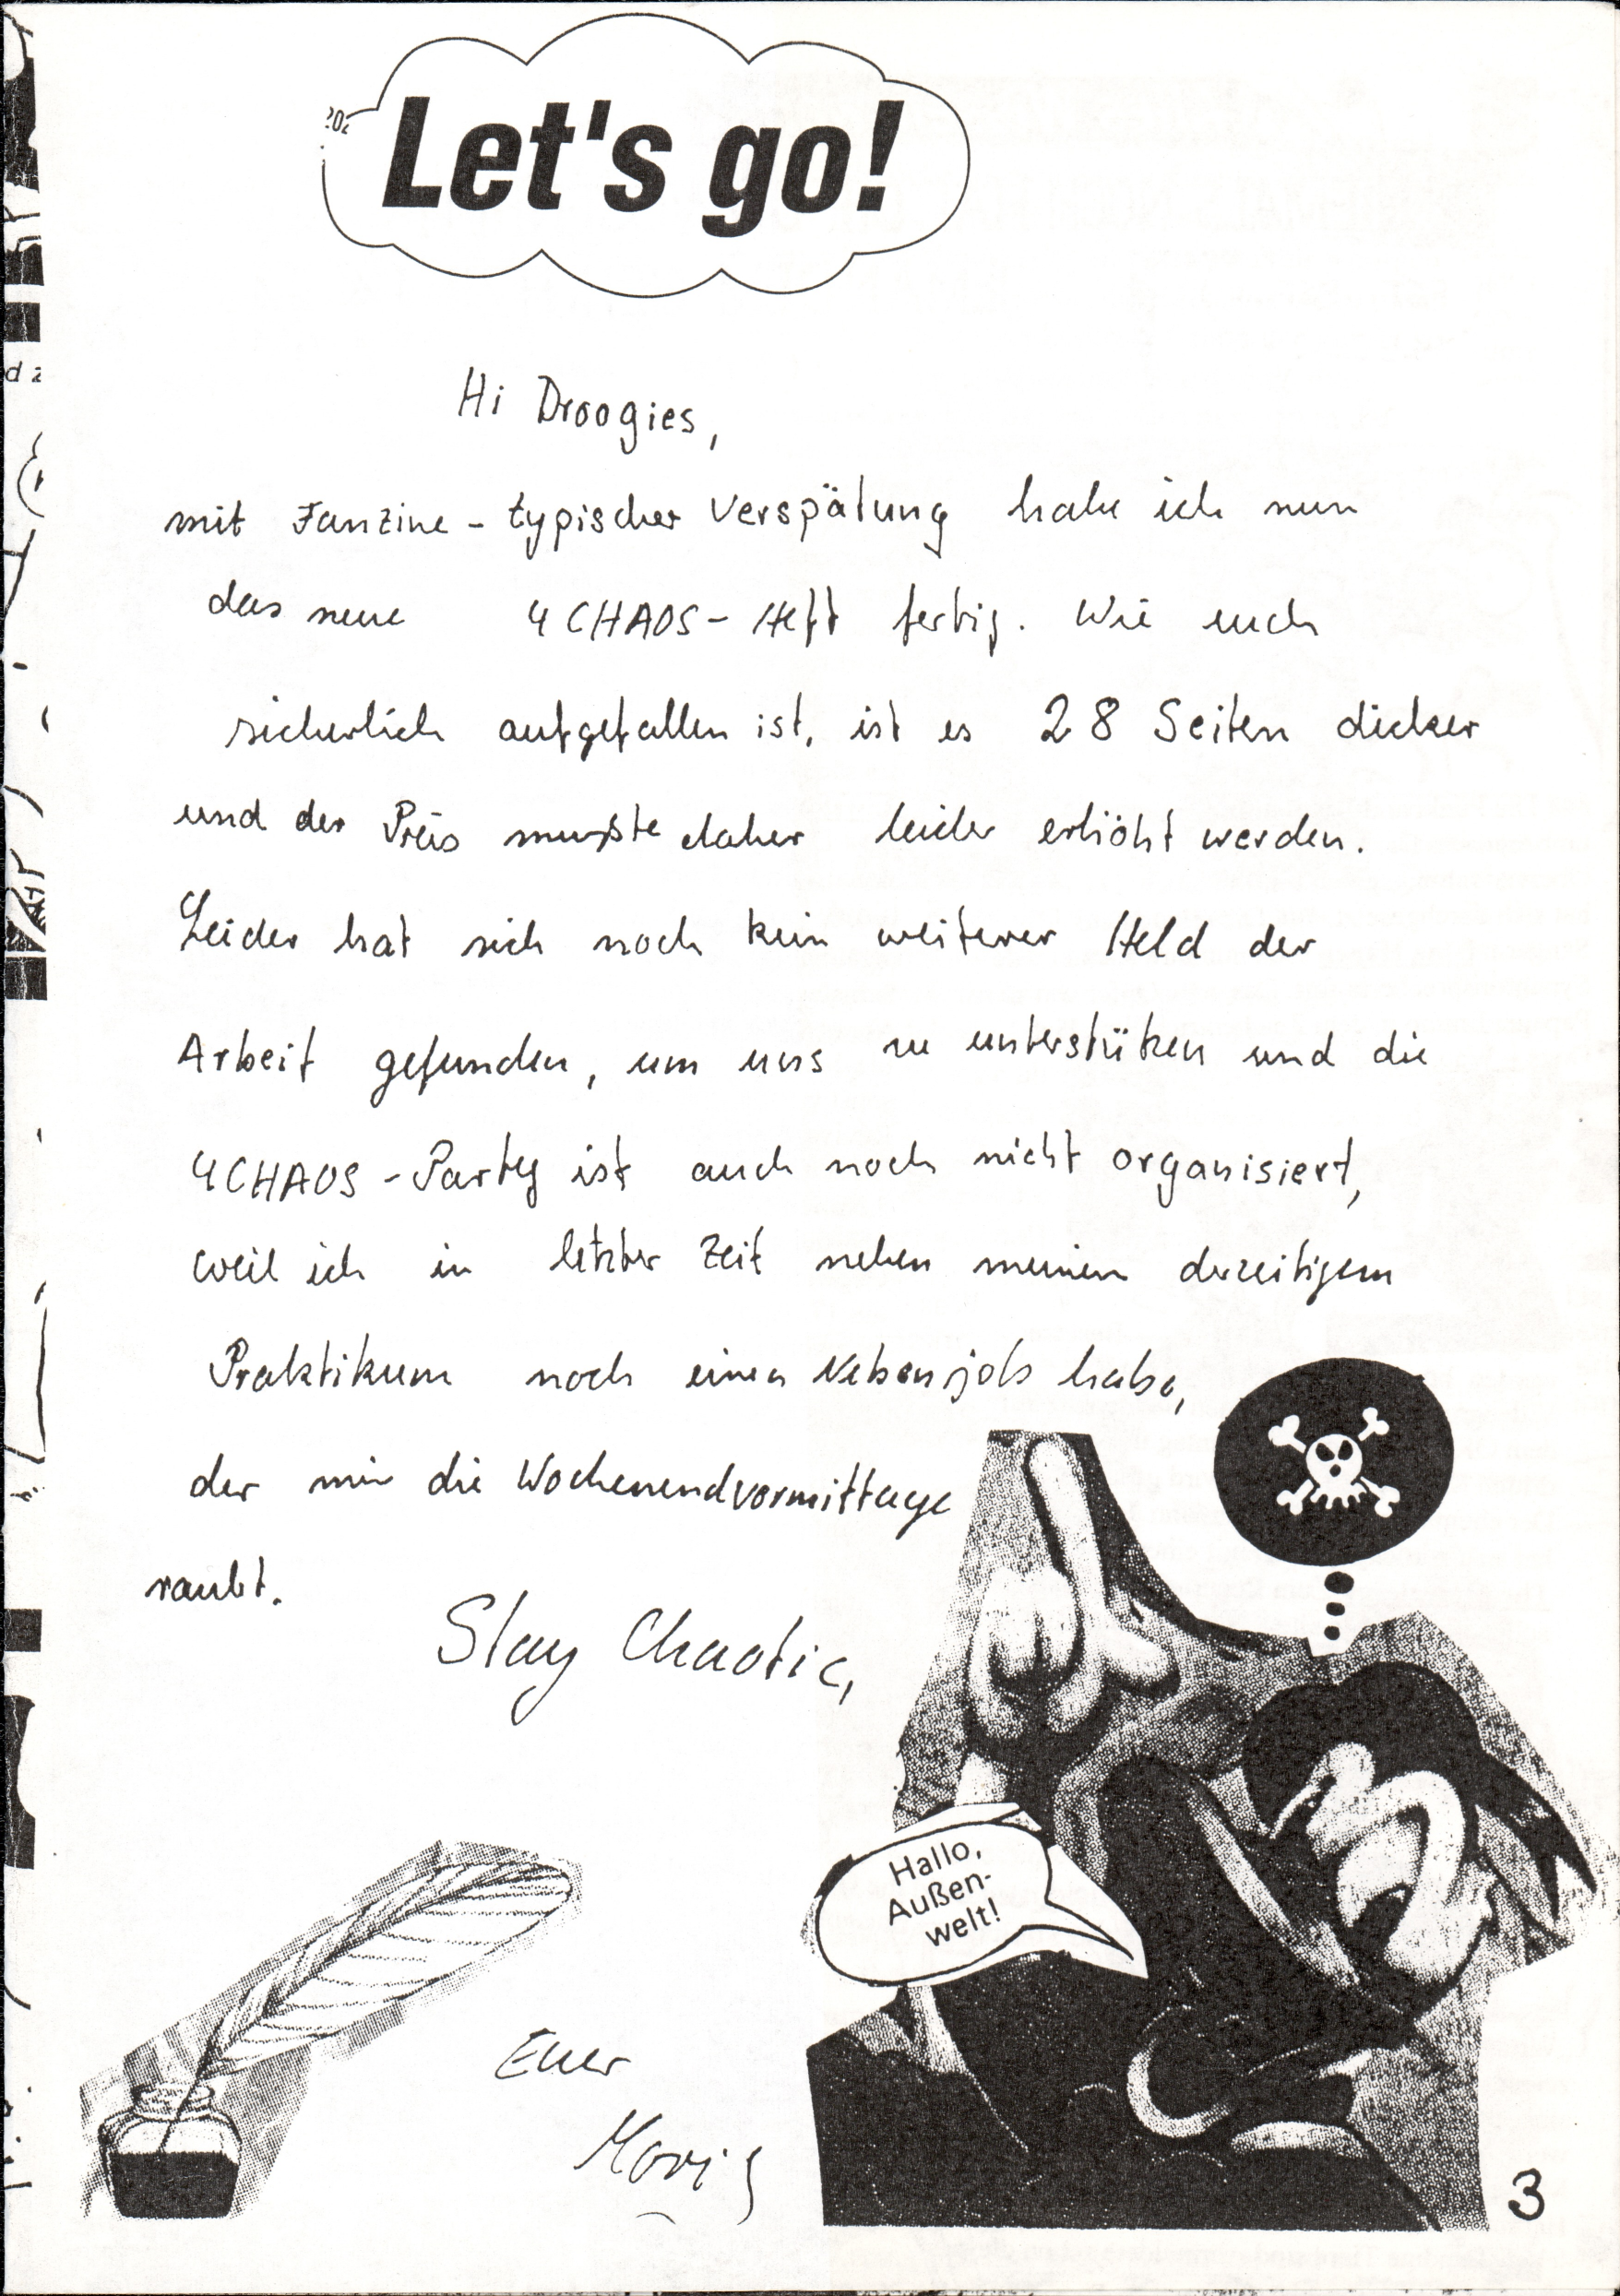 Let's go!
Hi Droogies,
mit Fanzine-typischer Verspätung habe ich nun
das neue 4CHAOS-Heft fertig. Wie euch
sicherlich aufgefallen ist, ist es 28 Seiten dicker
und der Preis mußte daher leider erhöht werden.
Leider hat sich noch kein weiterer Held der
Arbeit gefunden, um uns zu unterstützen und die
4CHAOS-Party ist auch noch nicht organisiert,
weil ich in letzter Zeit neben meinem derzeitigem
Praktikum noch einen Nebenjob habe,
der mir die Wochenendvormittage
raubt.
Stay Chaotic,
Hallo,
Außen-
welt!
Euer
3